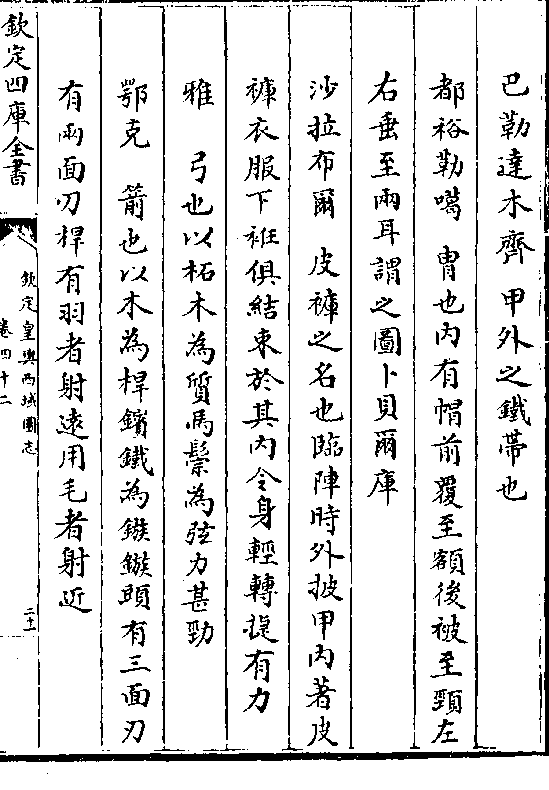 巴勒達木齊 甲外之鐵帶也
都裕勒噶 胄也内有帽前覆至額後被至頸左
右垂至兩耳謂之圖卜貝爾庫
沙拉布爾 皮褲之名也臨陣時外披甲内著皮
褲衣服下袵俱結束於其内令身輕轉捷有力
雅 弓也以柘木為質馬鬃為弦力甚勁
鄂克 箭也以木為桿鑌鐵為鏃鏃頭有三面刃
有兩面刃桿有羽者射遠用毛者射近
欽定四庫全書
欽定皇輿西域圖志
卷四十二
二十